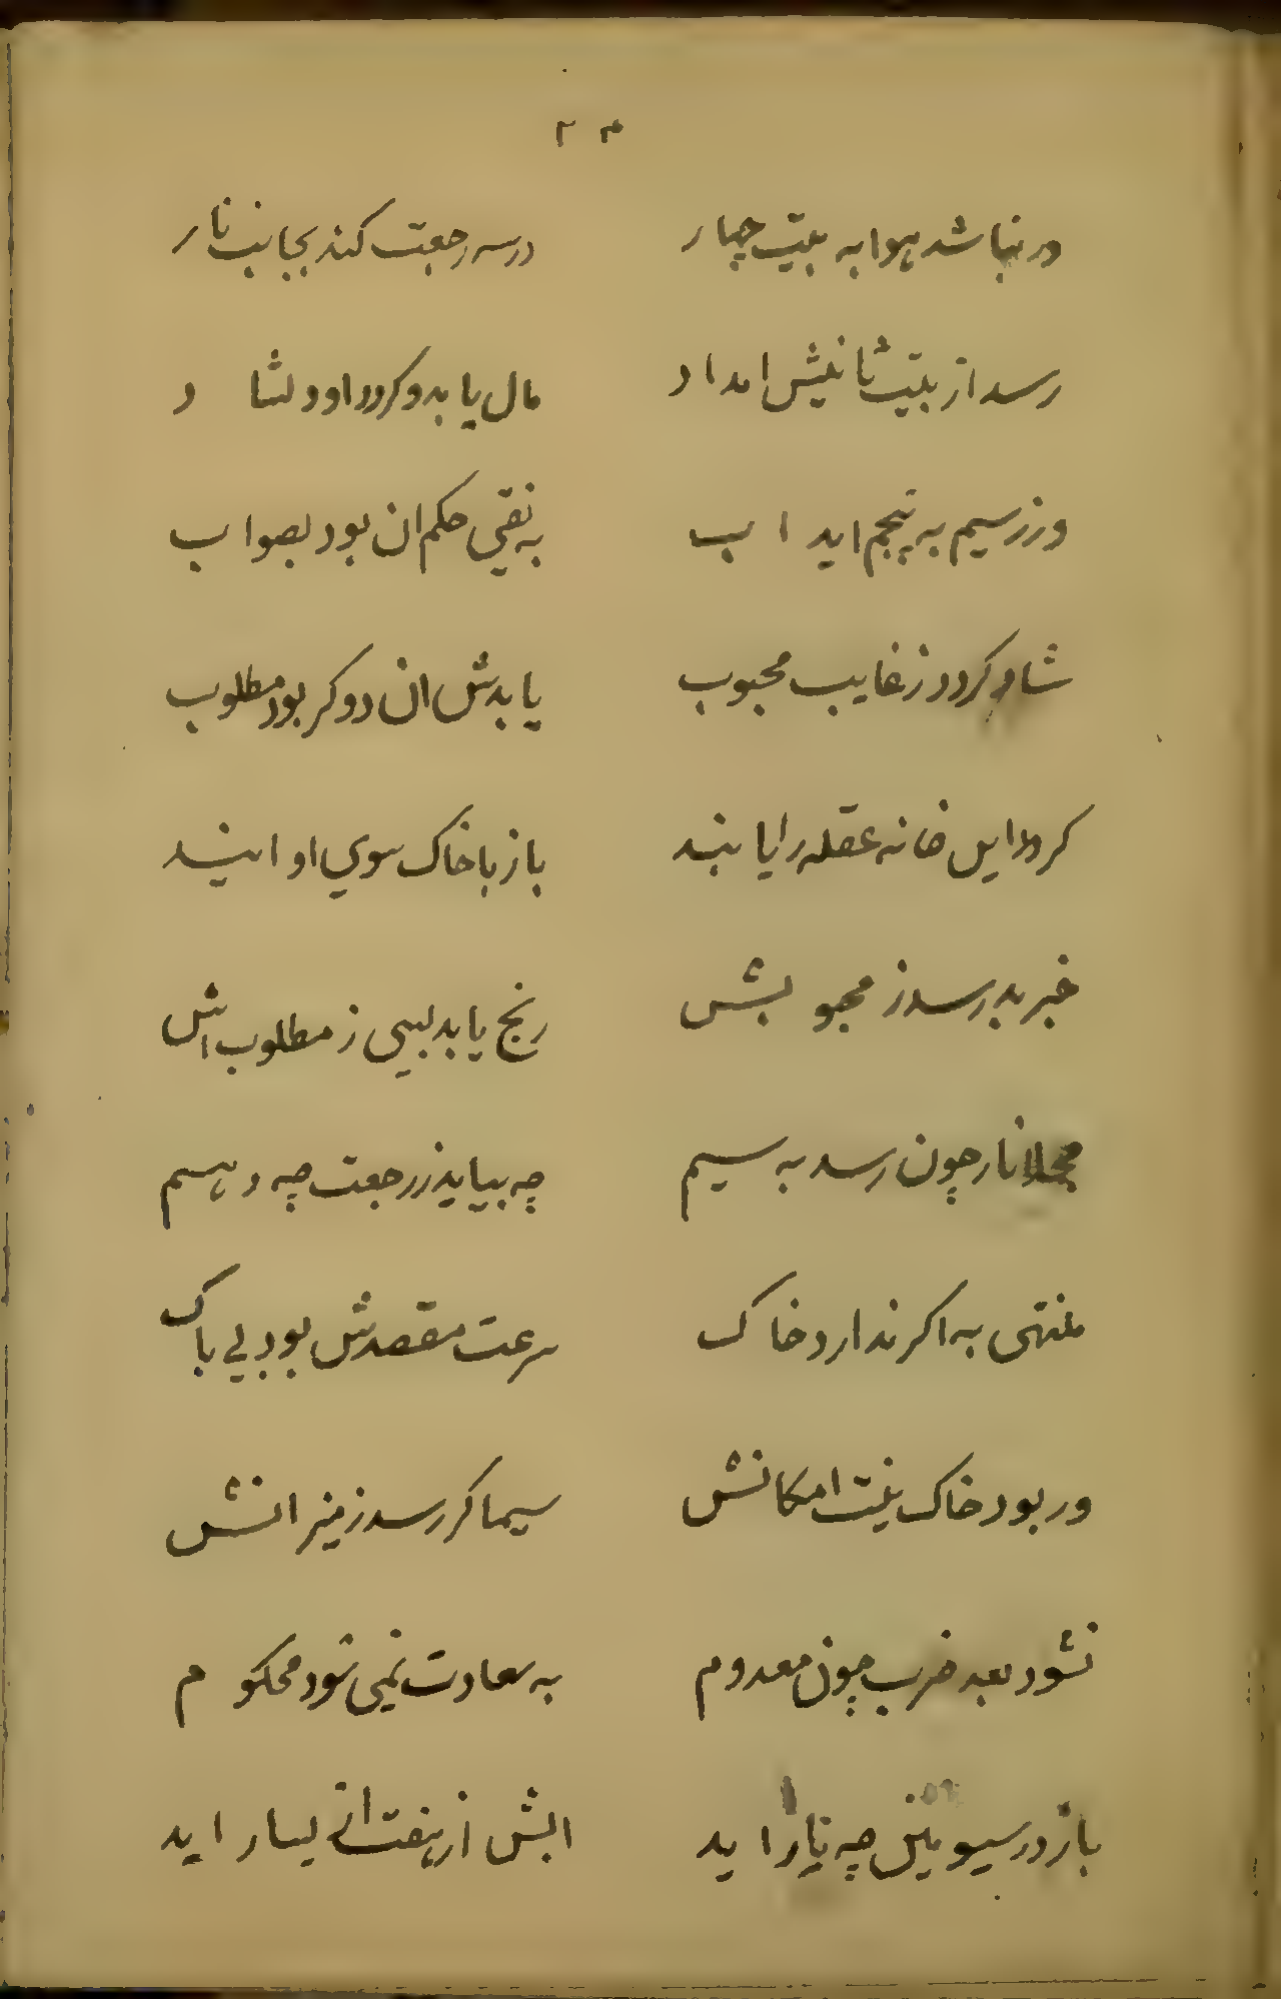 ۲۳
ور نباشد هوا به بیت چهار درسه رجعت کند بجانب نار
رسد از بیت ثانیش امداد مال یابد و کردد او دلشاد
ور ز سیم به پنجم اید اب به نقی حکم ان بود بصواب
شاد کردد ز غایب محبوب یابدش ان دو کر بود مطلوب
کردد این خانه عقله را پابند باز با خاک سوی او ایند
خبر بد رسد ز محبوبش رنج یابد بسی ز مطلوب اش
مجملا نار چون رسد به سیم چه بیاید ز رجعت چه دهم
منتهی به اکر ندارد خاک سرعت مقصدش بود بی باک
ور بود خاک نیت امکانش سیما کر رسد ز میزانش
نشود بعد ضرب چون معدوم به سعادت نمی شود محکوم
باز در سیومین چه نار اید ابش از هفت یسار اید